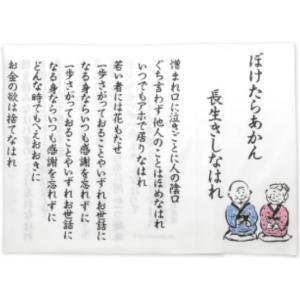 ぼけたらあかん
長生きしなはれ
憎まれ口に泣きごとに人の陰口
ぐち言わず他人のことはほめなはれ
いつでもアホで居りなはれ
若い者には花もたせ
一歩さがっておることやいずれお世話に
なる身ならいつも感謝を忘れずに
一歩さがっておることやいずれお世話に
なる身ならいつも感謝を忘れずに
どんな時でもへえおおきに
お金の欲は捨てなはれ